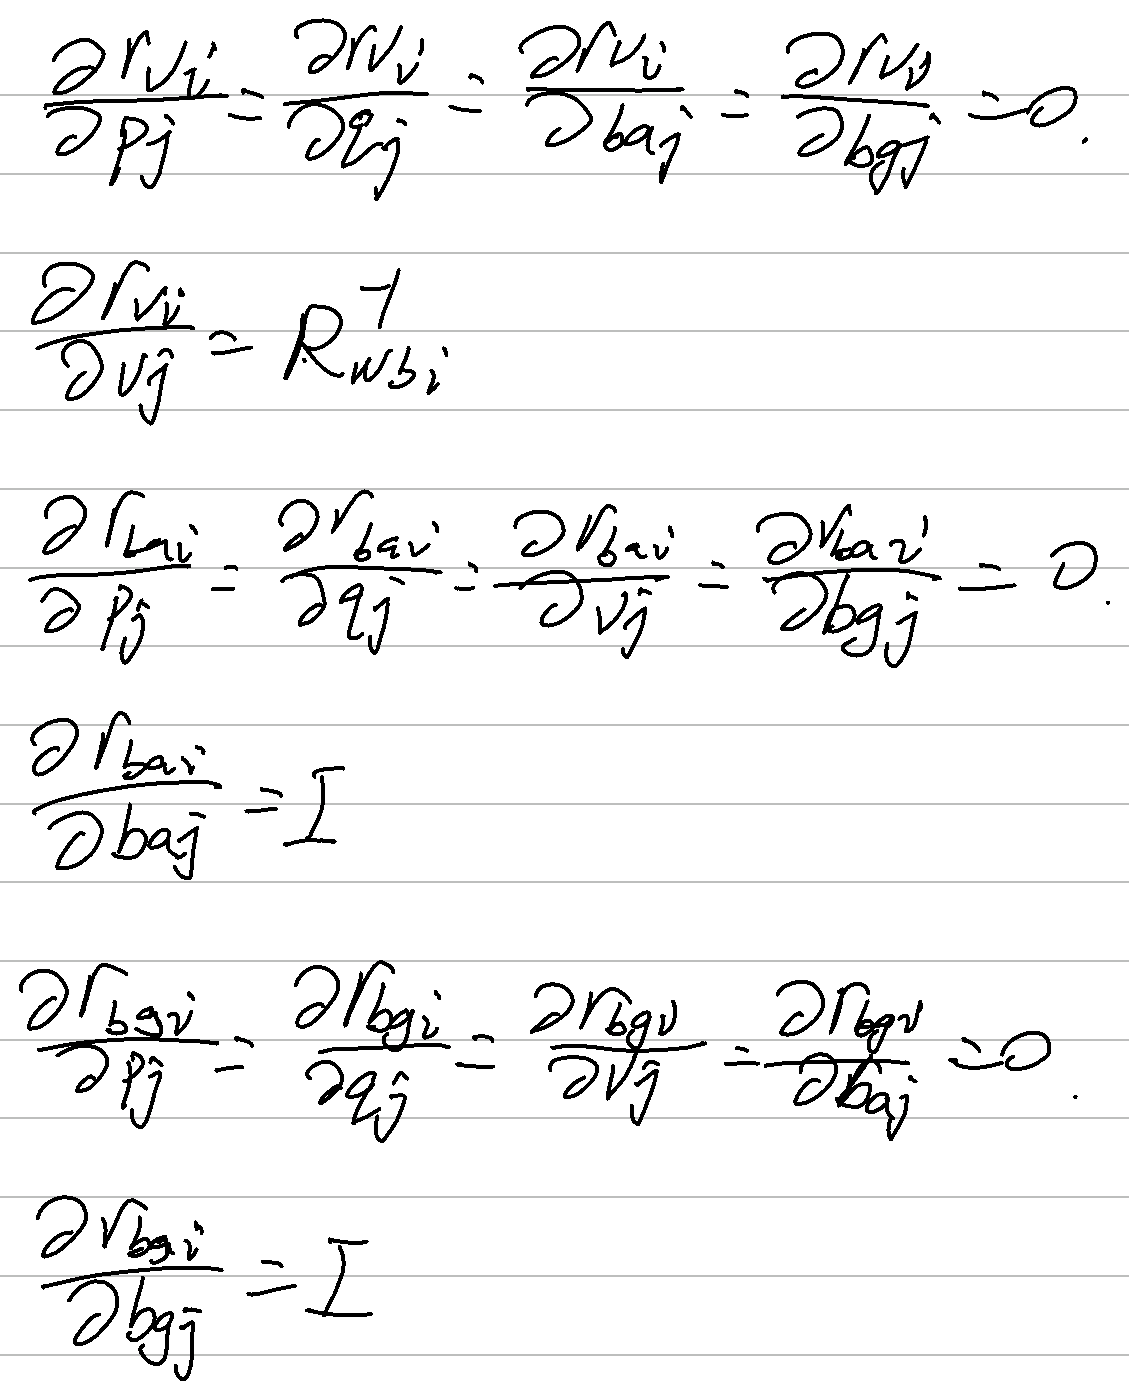 ∂r_{vi}/∂p_j = ∂r_{vi}/∂q_j = ∂r_{vi}/∂b_{aj} = ∂r_{vi}/∂b_{gj} = 0.
∂r_{vi}/∂v_j = R_{wb_i}^{-1}
∂r_{bai}/∂p_j = ∂r_{bai}/∂q_j = ∂r_{bai}/∂v_j = ∂r_{bai}/∂b_{gj} = 0.
∂r_{bai}/∂b_{aj} = I
∂r_{bgi}/∂p_j = ∂r_{bgi}/∂q_j = ∂r_{bgi}/∂v_j = ∂r_{bgi}/∂b_{aj} = 0.
∂r_{bgi}/∂b_{gj} = I